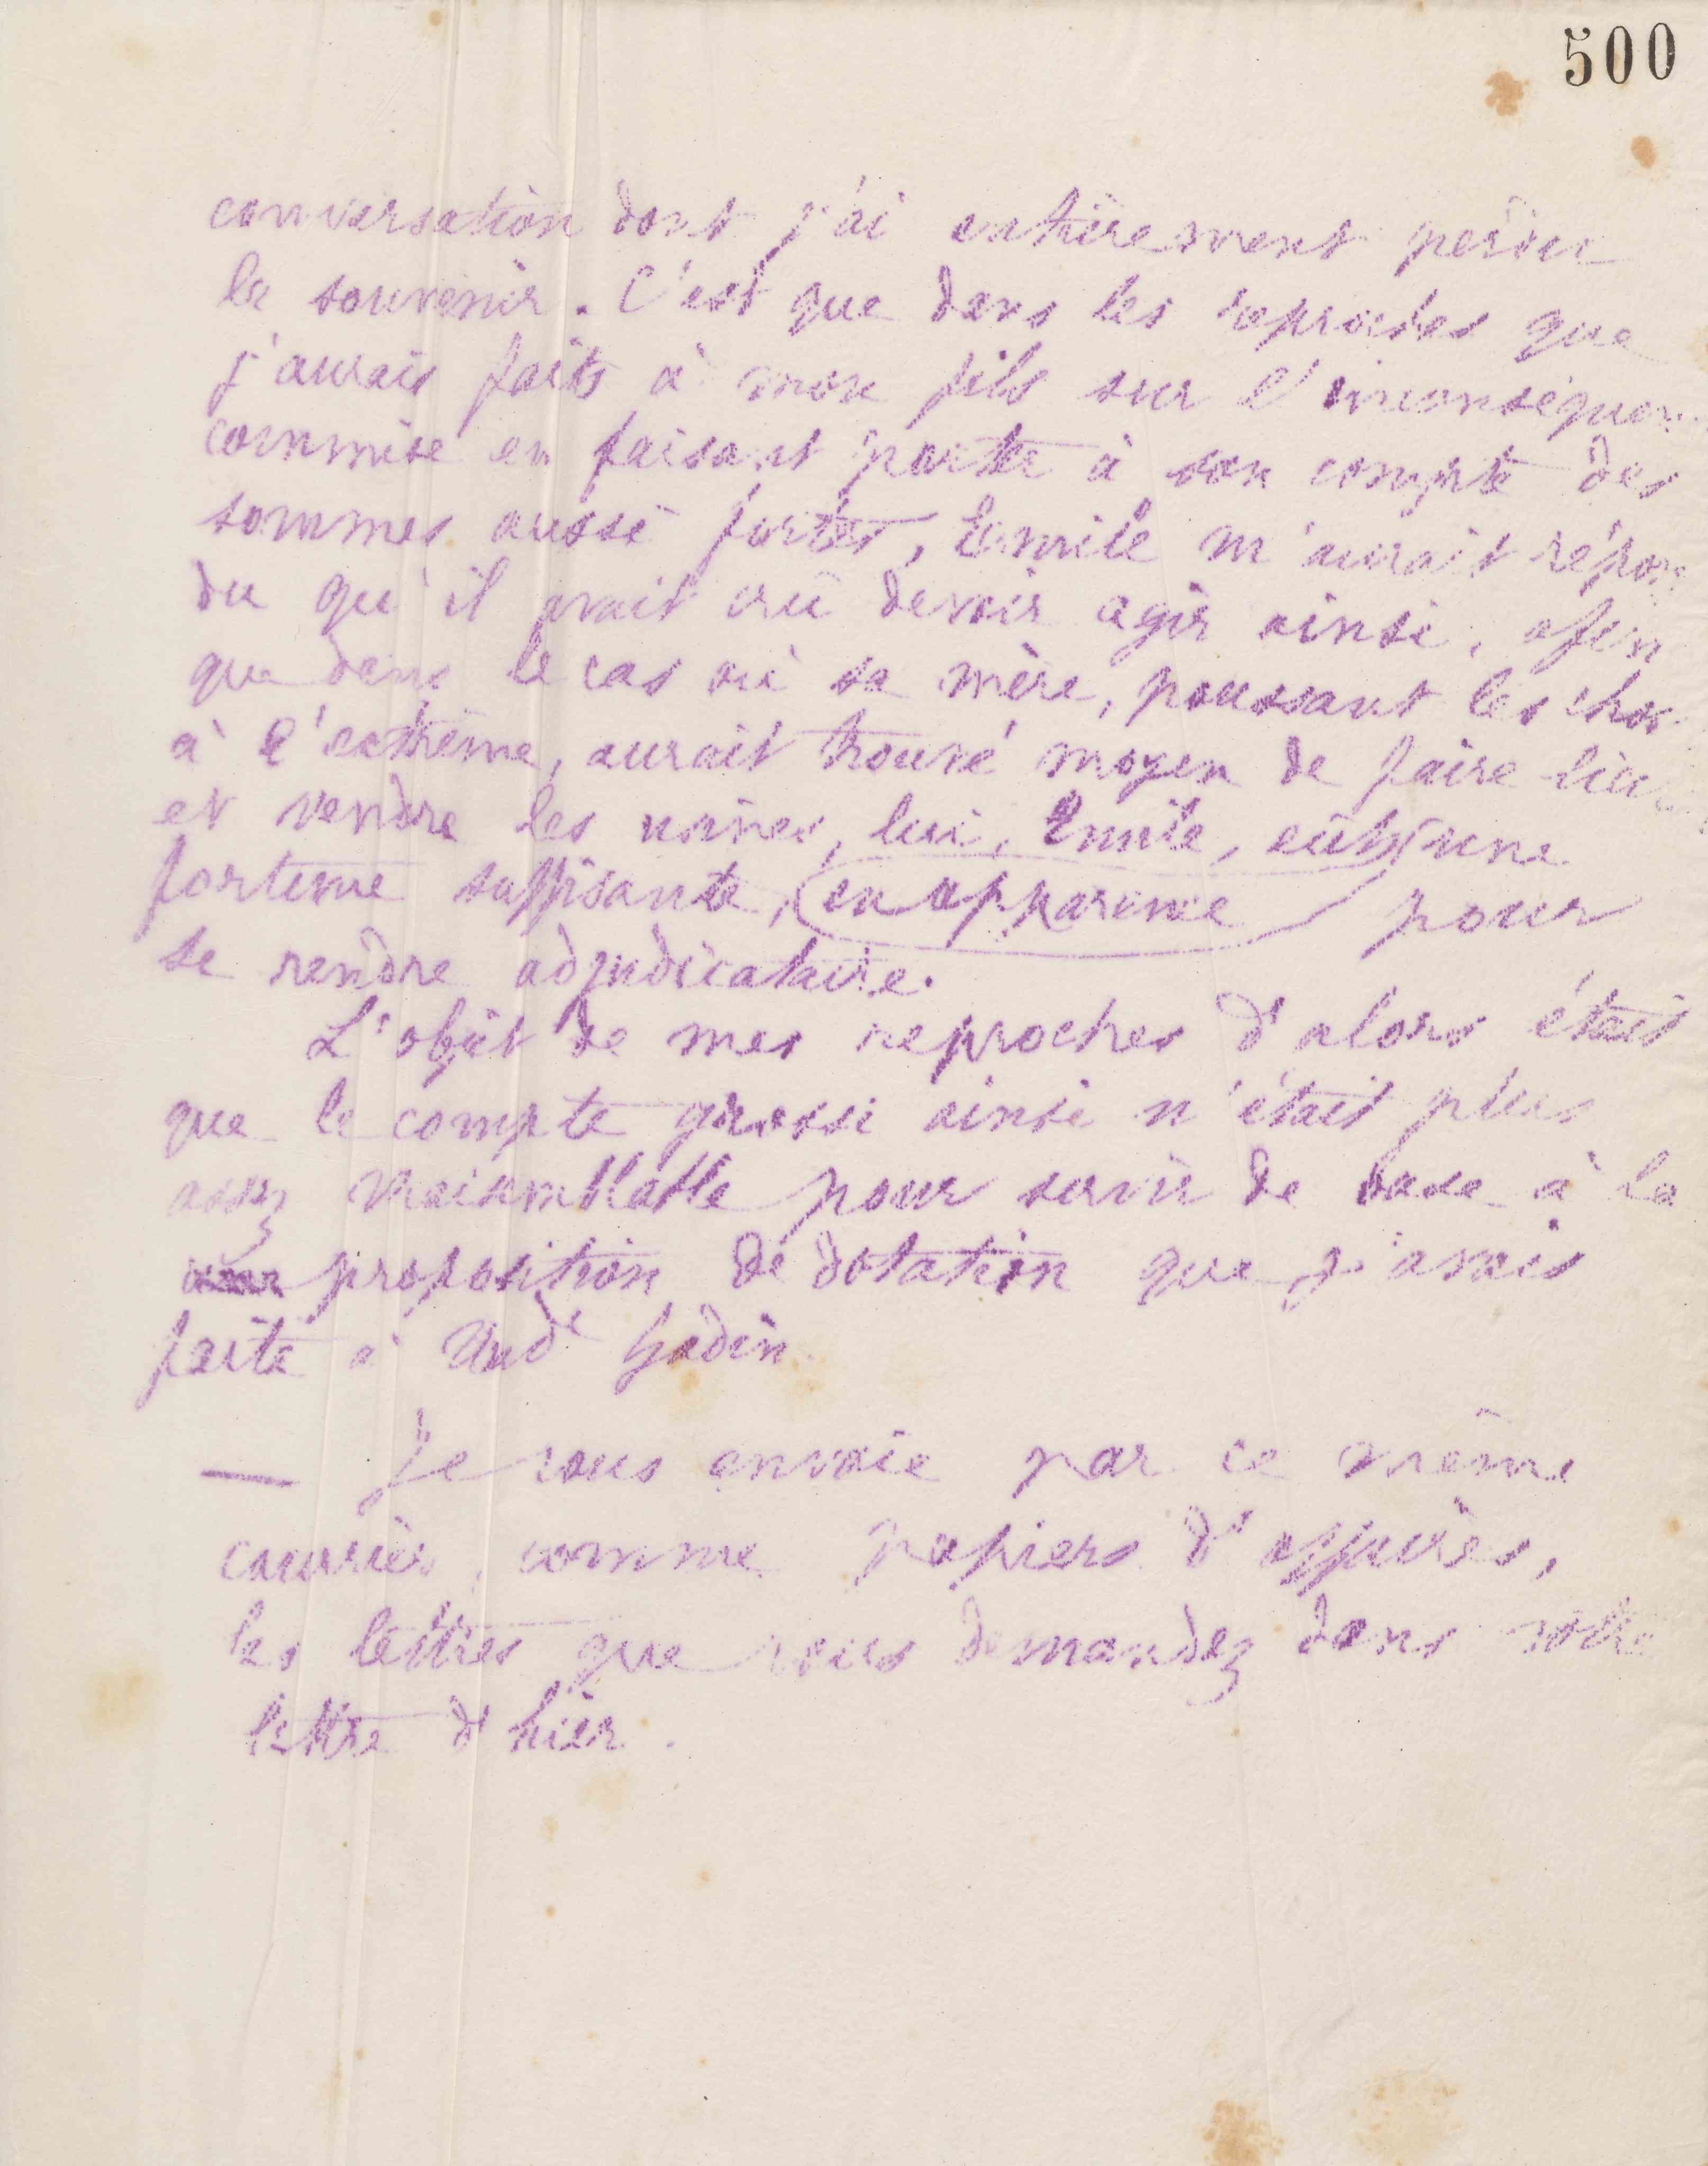 500
conversation dont j'ai entièrement perdu
le souvenir. C'est que dans les reproches que
j'aurais faits à mon fils sur l'inconséquen
commise en faisant porter à son compte des
sommes aussi fortes, Emile m'aurait répon
du qu'il avait crû devoir agir ainsi, afin
que dans le cas où sa mère, poussant les chos
à l'extrême, aurait trouvé moyen de faire
et vendre les usines, lui, Emile, eût une
fortune suffisante, en apparence pour
se rendre adjudicataire.
L'objet de mes reproches d'alors était
que le compte grossi ainsi n'était plus
assez vraisemblable pour servir de base à la
proposition de dotation que j'avais
faite à Made Godin.
— Je vous envoie par ce même
courrier, comme papiers d'affaires,
les lettres que vous demandez dans votre
lettre d'hier.